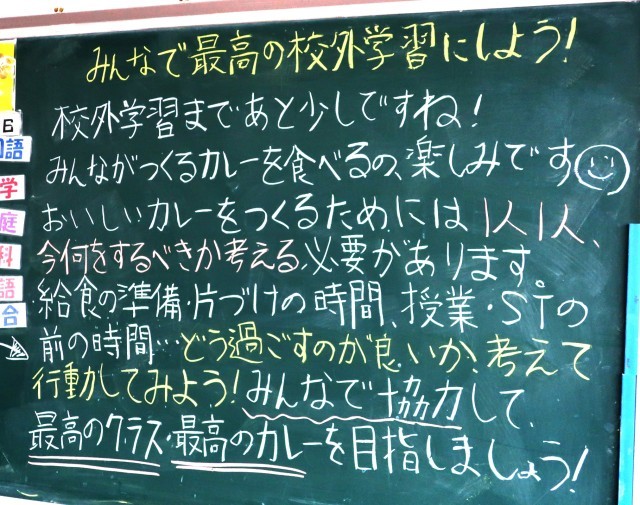 みんなで最高の校外学習にしよう!
校外学習まであと少しですね!
みんながつくるカレーを食べるの、楽しみです
おいしいカレーをつくるためには1人1人、
今何をするべきか考える必要があります。
給食の準備・片づけの時間、授業・STの
前の時間…どう過ごすのが良いか、考えて
行動してみよう!みんなで協力して、
最高のクラス・最高のカレーを目指しましょう!
6
語
学
庭
科
語
合